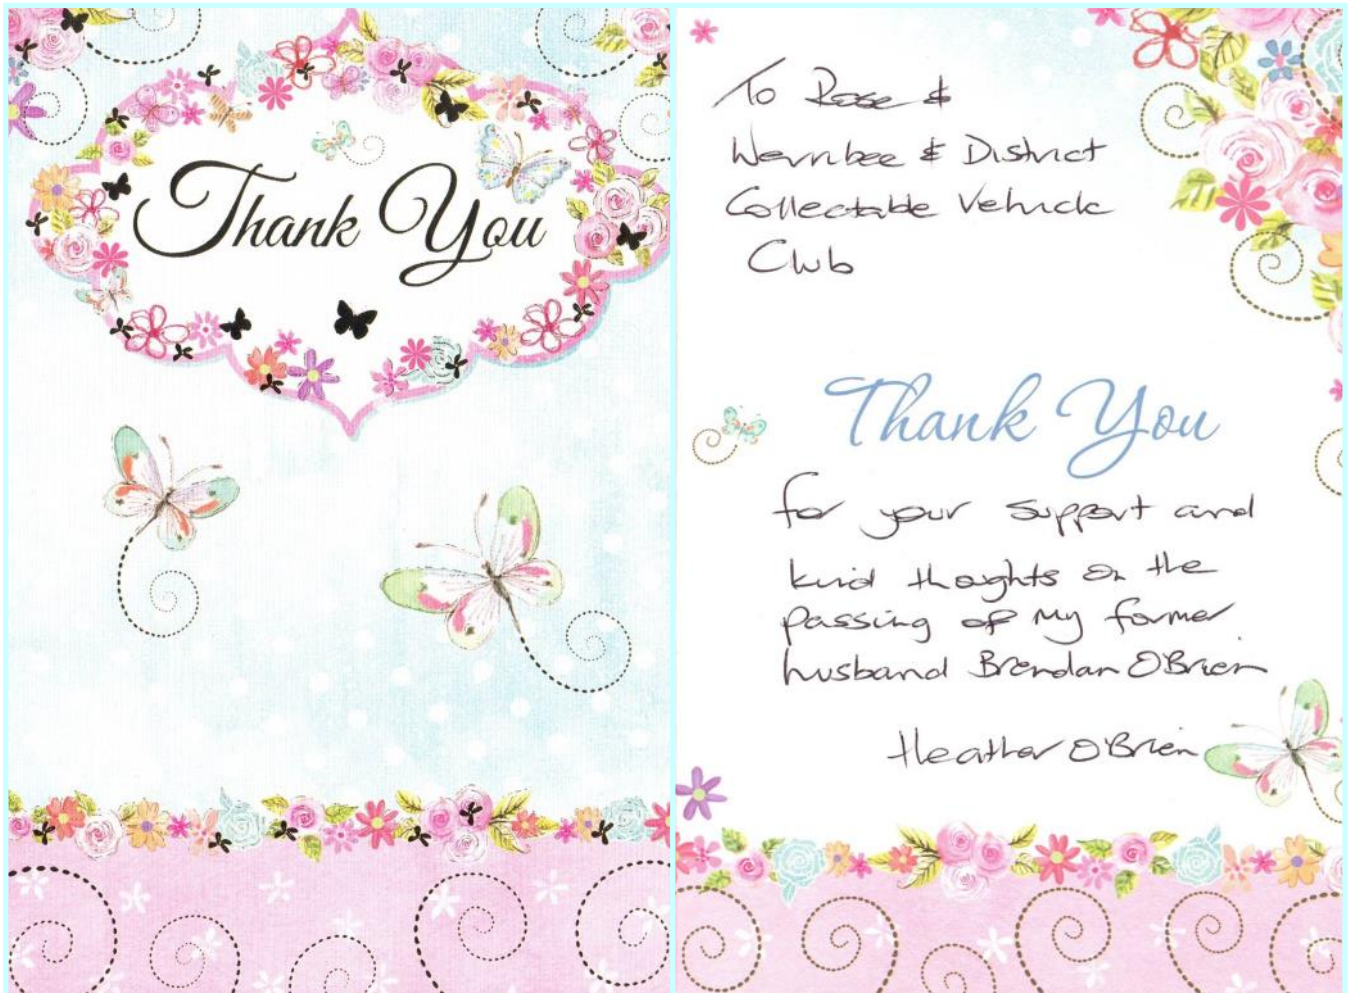 Thank You
To Rose &
Werribee & District
Collectable Vehicle
Club
Thank You
for your support and
kind thoughts on the
passing of my former
husband Brendan O'Brien
Heather O'Brien